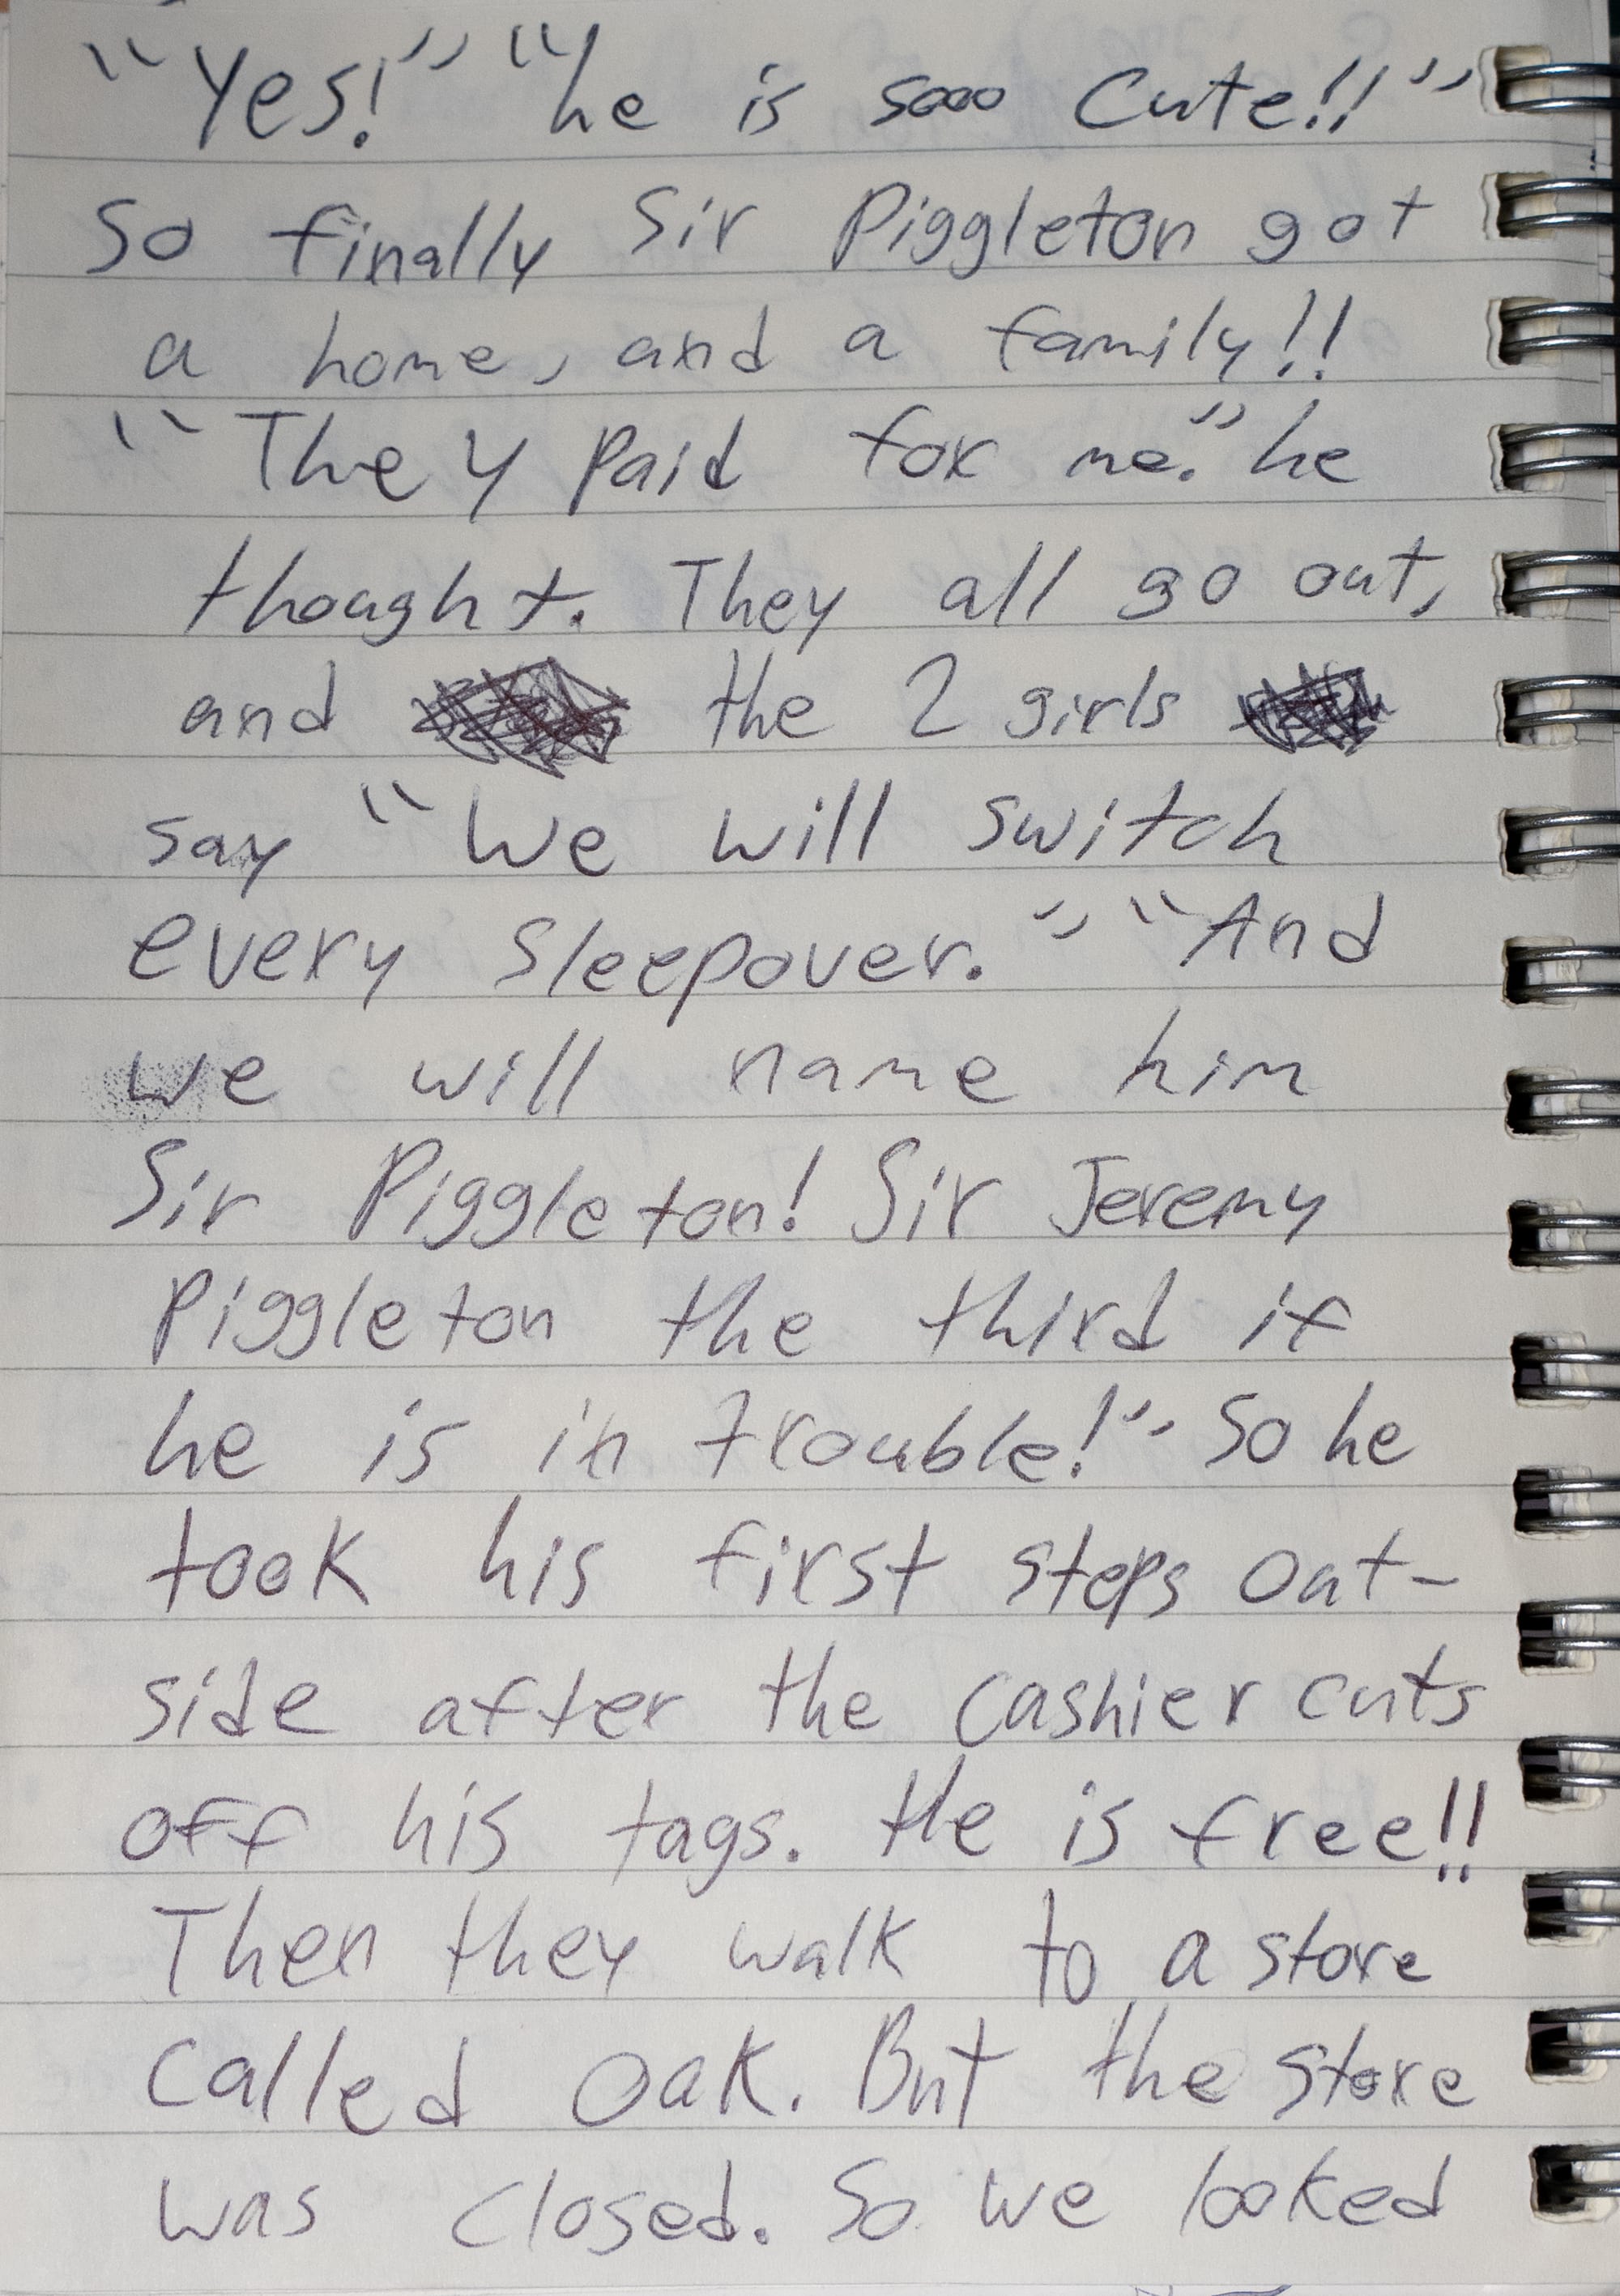 "Yes!" "he is sooo cute!!"
So finally Sir Piggleton got
a home, and a family!!
"They paid for me." he
thought. They all go out,
and the 2 girls
say "We will switch
every sleepover." "And
we will name him
Sir Piggleton! Sir Jeremy
Piggleton the third if
he is in trouble!" So he
took his first steps out-
side after the cashier cuts
off his tags. He is free!!
Then they walk to a store
called Oak. But the store
was closed. So we looked